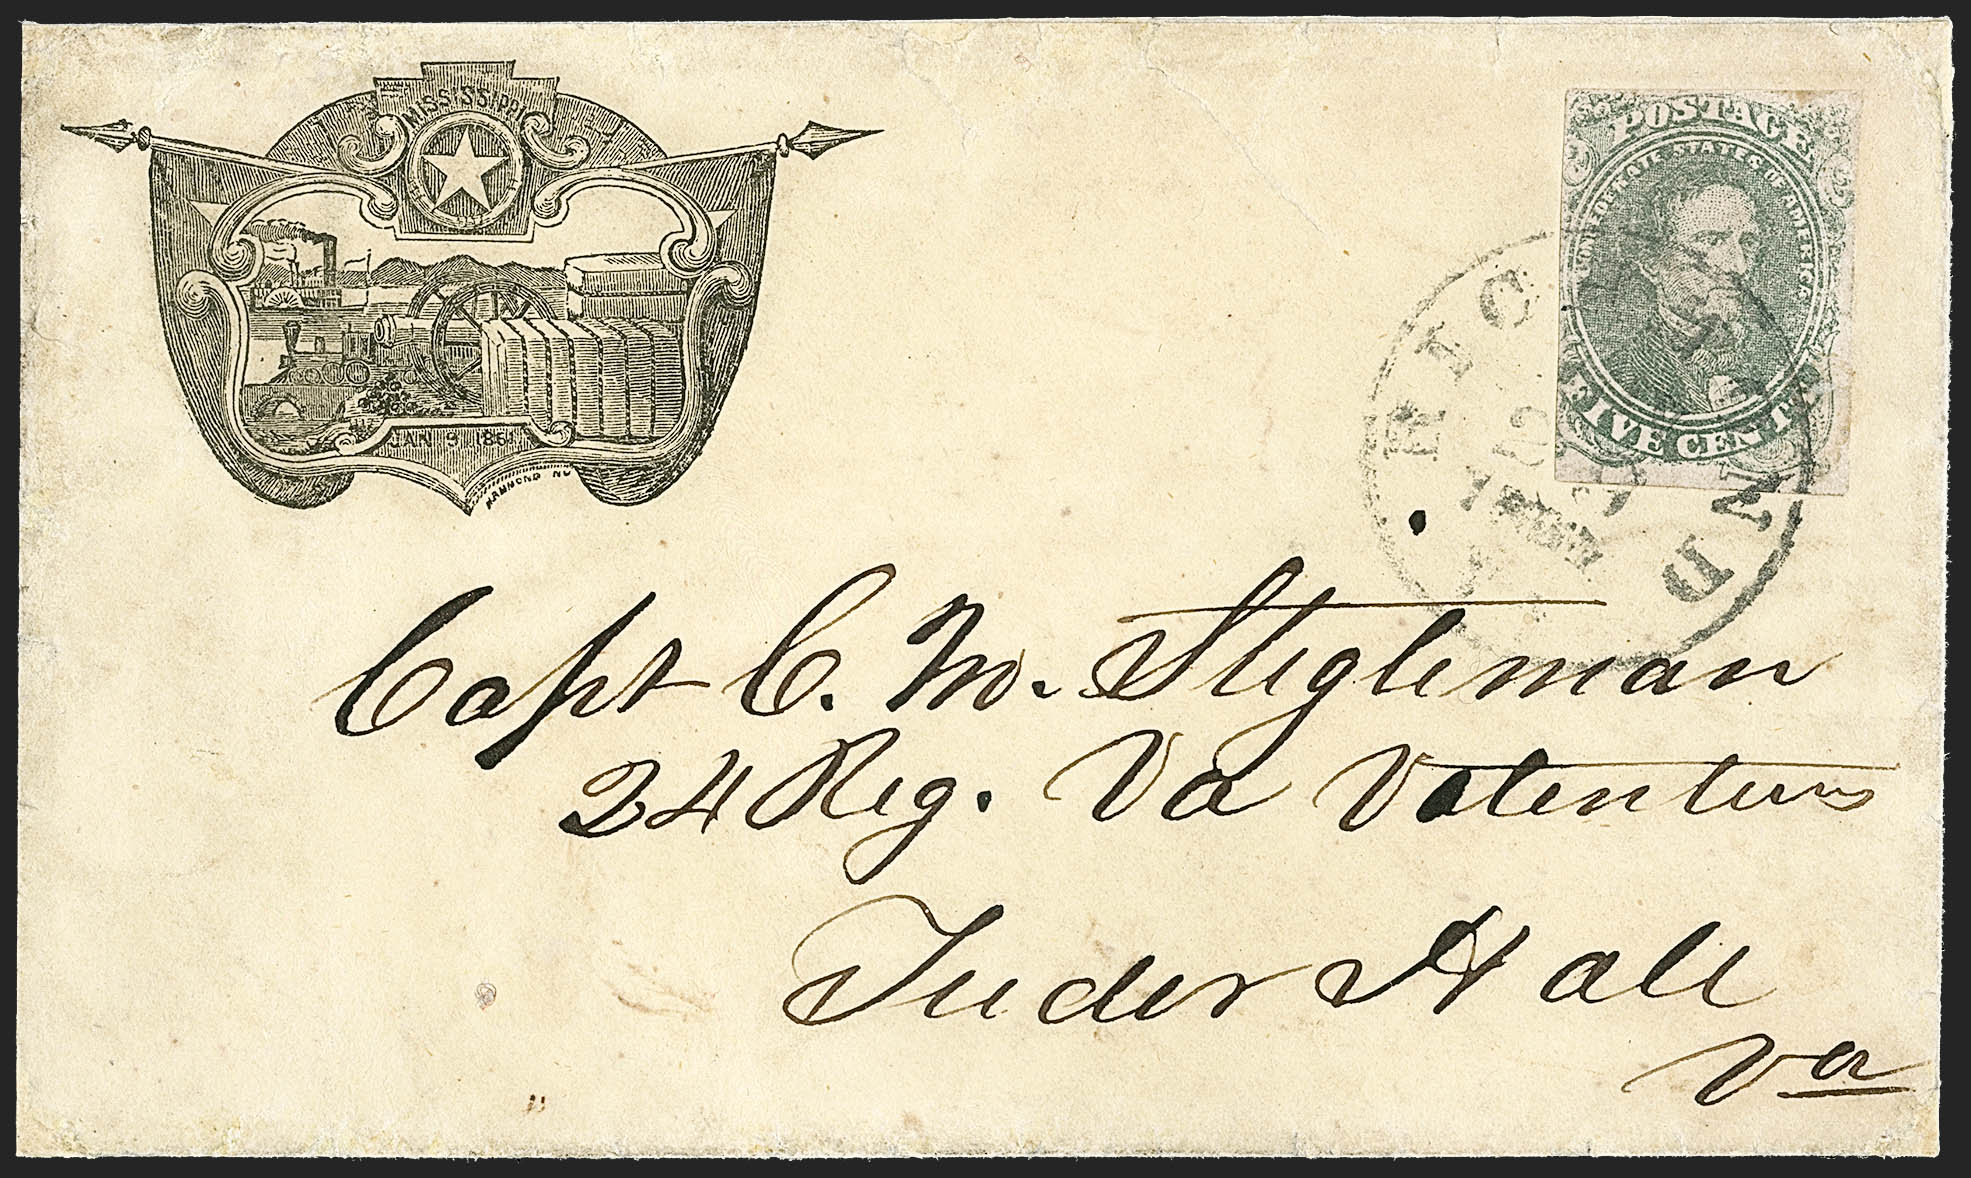 MISSISSIPPI
JAN 9 1861
HAMMOND NO
POSTAGE
CONFEDERATE STATES OF AMERICA
FIVE CENTS
RICHMOND
Capt C. M. Stigleman
24 Reg. Va Volenteers
Tuder Hall
Va